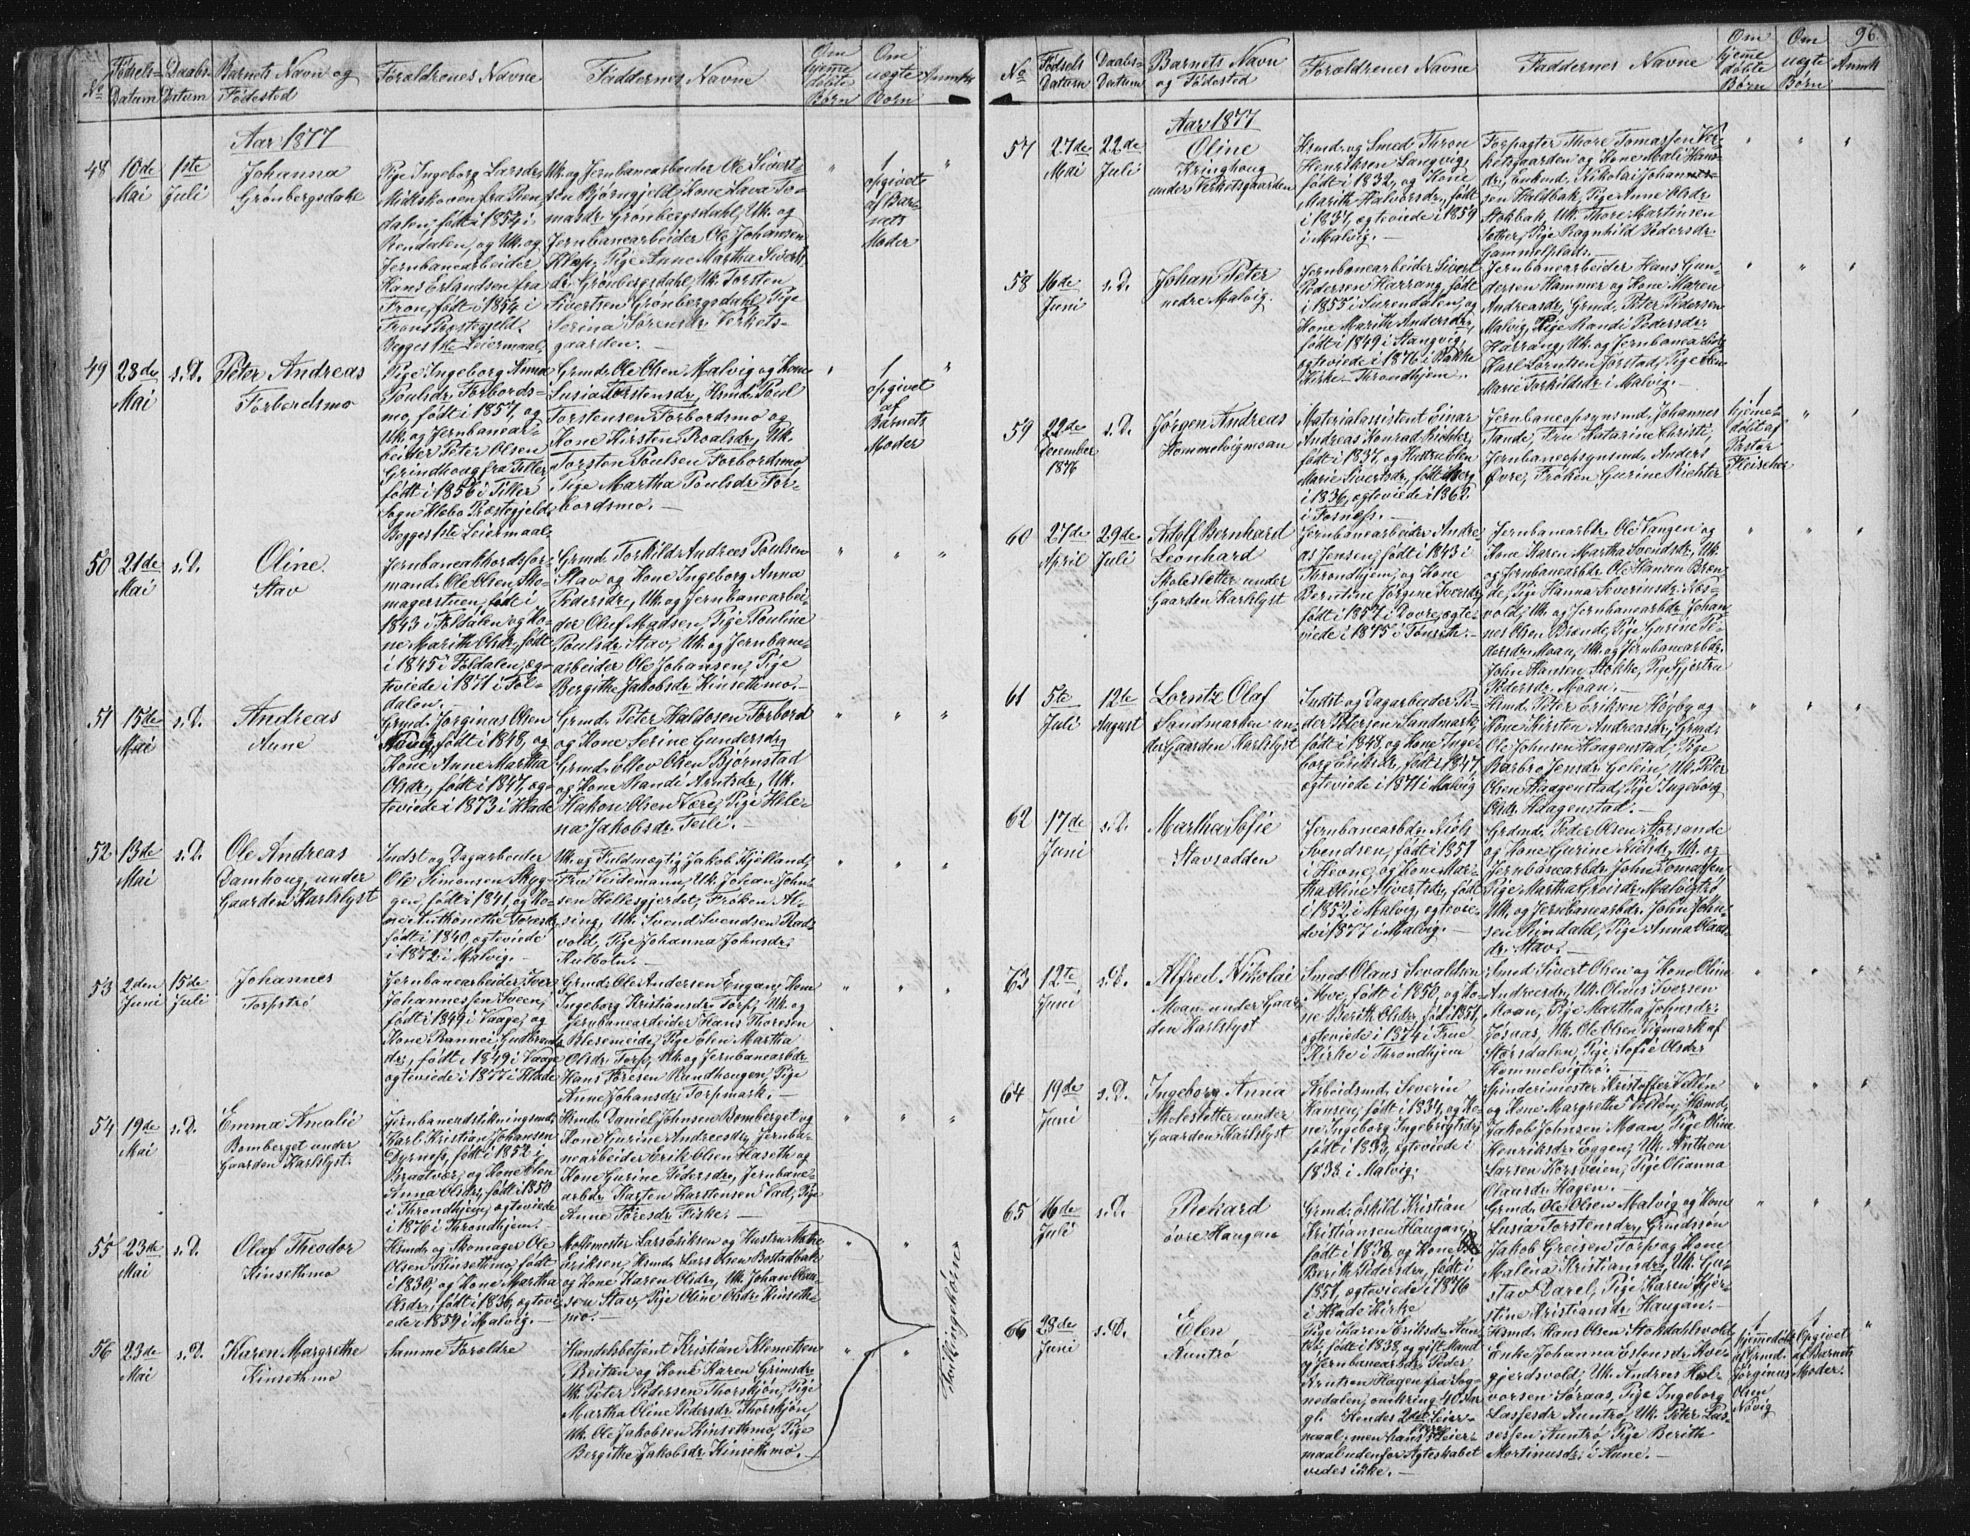 96.
No
Fødsels-
Datum
Daabs-
Datum
Barnets Navn og
Fødested
Forældrenes Navne
Faddernes Navne
Om
hjemme
døbte
Børn
Om
uægte
Børn
Anmk
Aar 1877
48
10de
Mai
1ste
Juli
Johanna
Grønbergsdahl
Pige Ingeborg Larsdr
Midtskoven fra Ren-
dalen, født i 1854 i
Rendalen, og Uk. og
Jernbanearbeider
Hans Erlandsen fra
Fron, født i 1854 i
Frons Præstegjeld.
Begges 1ste Leiermaal.
Uk. og Jernbanearbeider Ole Sivert-
sen Bjørngjeld, Kone Lava To-
masdr Grønbergsdahl, Uk. og
Jernbanearbeider Ole Johansen
Klop, Pige Anne Martha Siverts-
dr. Grønbergsdahl, Uk. Torsten
Sivertsen Grønbergsdahl, Pige
Serina Sørensdr. Verkets-
gaarden.
1
opgivet
af Bar-
nets
Moder
49
28de
Mai
s. D.
Peter Andreas
Forbordsmo
Pige Ingeborg Anna
Poulsdr. Forbords-
mo, født i 1857, og
Uk. og Jernbanear-
beider Peter Olsen
Grindhoug fra Tiller,
født i 1856 i Tiller
Sogn Klæbo Præstegjeld.
Begges 1ste Leiermaal.
Grmd. Ole Olsen Malvig og Kone
Lusia Torstensdr, Hsmd. Poul
Torstensen Forbordsmo og
Kone Kirsten Roalsdr, Uk.
Torsten Poulsen Forbordsmo
Pige Martha Poulsdr For-
bordsmo.
1
opgivet
af
Barnets
Moder
50
21de
Mai
s. D.
Oline
Stav
Jernbaneakkordsfor-
mand Ole Olsen Sko-
magerstuen, født i
1843 i Foldalen og Ko-
ne Marith Olsdr, født
i 1845 i Foldalen, æg-
teviede i 1871 i Fol-
dalen.
Grmd. Torkild Andreas Poulsen
Stav og Kone Ingeborg Anna
Pedersdr, Uk. og Jernbanearbei-
der Oluf Madsen, Pige Pouline
Poulsdr Stav, Uk. og Jernbane-
arbeider Ole Johansen, Pige
Bergithe Jakobsdr Kinsethmo.
51
15de
Mai
s. D.
Andreas
Aune
Grmd. Jørginus Olsen
Aune, født i 1848, og
Kone Anne Martha
Olsdr, født i 1847, æg-
teviede i 1873 i Hlade
Grmd. Peter Haldosen Forbord
og Kone Serine Gundersdr,
Grmd. Ellev Olsen Bjørnstad
og Kone Randi Arntsdr, Uk.
Hakon Olsen Være, Pige Hele-
na Jakobsdr Tesli.
52
13de
Mai
s. D.
Ole Andreas
Damhoug under
Gaarden Karlslyst
Indst og Dagarbeider
Ole Simonsen Skyg-
gen, født i 1841, og Ko-
født i 1840, ægteviede
i 1872 i Malvig.
Uk. og Fuldmægtig Jakob Kjelland,
Fru Veidemann, Uk. Johan John-
sen Hellesgjerdet, Frøken Al-
sing, Uk. Svend Svendsen Rad-
vold, Pige Johanna Johnsdr.
53
2den
Juni
15de
Juli
Johannes
Torpstrø
Jernbanearbeider Iver
Johannessen Sveen,
født i 1849 i Vaage, og
Kone Rannei Gulbrands-
dr., født i 1849 i Vaage
ægteviede i 1877 i Hlade
Grmd. Ole Andersen Engan, Kone
Ingeborg Kristiansdr Torp, Uk. og
Jernbanearbeider Hans Thoresen
Blesemeide, Pige Elen Martha
Olsdr. Torp, Uk. og Jernbanearbdr
Hans Toresen Rundhougen, Pige
Anne Johansdr. Torpmark.
54
19de
Mai
s. D.
Emma Amalie
Bomberget under
Gaarden Karlslyst.
Jernbanestikningsmd.
Karl Kristian Johansen
Dyrnes, født i 1852 i
Braatvær, og Kone Elen
Anna Olsdr, født i 1850
i Throndhjem, ægteviede
i 1876 i Throndhjem.
Hsmd. Daniel Johnsen Bomberget og
Kone Gurine Andreasdr, Jernba-
nearbeider Erik Olsen Haseth og
Kone Gurine Pedersdr, Jernbane-
arbdr Karsten Karstensen Vad, Pige
Anne Toresdr Fiske.
55
23de
Mai
s. D.
Olaf Theodor
Kinsethmo
Hsmd. og Skomager Ole
Olsen Kinsethmo, født
i 1830, og Kone Martha
Olsdr., født i 1836, ægtevi-
ede i 1859 i Malvig.
Møllemester Lars Eriksen og Hustru Malene
Eriksen, Hsmd. Lars Olsen Bostadbak
og Kone Karen Olsdr, Uk. Johan Olaus-
sen Stav, Pige Oline Olsdr Kinseth-
mo.
56
23de
Mai
s. D.
Karen Margrethe
Kinsethmo
Samme Forældre
Handelsbetjent Kristian Klemetsen
Reitan og Kone Karen Grimsdr
Uk. Peter Pedersen Thorskjøn, Pige
Martha Oline Pedersdr Thorskjøn
Uk. Ole Jakobsen Kinsethmo, Pige
Bergithe Jakobsdr Kinsethmo.
Tvillingsødskene
No
Fødsels
Datum
Daabs-
Datum
Barnets Navn
og Fødested
Forældrenes Navne
Faddernes Navne
Om
hjemme
døbte
Børn
Om
uægte
Børn
Anmk
Aar 1877
57
27de
Mai
22de
Juli
Oline
Kringhoug
under Verketsgaarden
Hsmd. og Smed Thron
Henriksen Langvig,
født i 1832, og Kone
Marith Halvorsdr, født
i 1837, ægteviede i 1859
i Malvig.
Forpagter Thore Tomassen Ver-
ketsgaarden og Kone Mali Hans-
dr, Enkmd. Nikolai Johannes-
sen Haldbak, Pige Anne Olsdr
Stokbak, Uk. Thore Martinsen
Sæther, Pige Ragnhild Pedersdr
Gammelplads.
58
16de
Juni
s. D.
Johan Peter
nedre Malvig.
Jernbanearbeider Sivert
Pedersen Harrang, født
i 1855 i Surendalen, og
Kone Marith Andersdr,
født i 1849 i Stangvig,
ægteviede i 1876 i Bakke
Kirke Throndhjem.
Jernbanearbeider Hans Gun-
dersen Hammer og Kone Maren
Andreasdr, Grmd. Peter Pedersen
Malvig, Pige Randi Pedersdr
Harrang, Uk. og Jernbanearbdr
Karl Lorntsen Forstad, Pige Elen
Marie Torkildsdr i Malvig.
59
22de
December
1876
s. D.
Jørgen Andreas
Hommelvigmoan
Materialassistent Einar
Andreas Konrad Richter,
født i 1837, og Hustru Elen
Marie Sivertsdr, født i Berg
i 1836, ægteviede i 1862
i Fosnæs.
Jernbaneopsynsmd. Johannes
Tande, Fru Katarine Christi,
Jernbaneopsynsmd. Anders
Øvre, Frøken Gurine Richter
1
hjemme-
døbt af
Pastor
Fleischer
60
27de
April
29de
Juli
Adolf Bernhard
Leonhard
Skalesletter under
Gaarden Karlslyst
Jernbanearbeider Andre-
as Jensen, født i 1843 i
Throndhjem, og Kone
Berntine Jørgine Iversdr,
født i 1857 i Dovre, ægte-
viede i 1875 i Tønseth.
Jernbanearbdr. Ole Vangen og
Kone Karen Martha Svendsdr, Uk.
og Jernbanearbdr Ole Hansen Bræn-
de, Pige Hanna Severinsdr Næs-
vold, Uk. og Jernbanearbdr. Johan-
nes Olsen Brænde, Pige Gurine Pe-
dersdr. Moan, Uk. og Jernbanearbdr.
John Hansen Stokke, Pige Gjertru
Pedersdr. Moan.
61
5te
Juli
12te
August
Lorntz Olaf
Sandmarken un-
der Gaarden Karlslyst
Indst og Dagarbeider Pe-
der Petersen Sandmark,
født i 1848, og Kone Inge-
borg Eriksdr, født i 1847,
ægteviede i 1871 i Malvig
Hsmd. Peter Eriksen Høyby og
Kone Kirsten Andreasdr, Grmd.
Ole Johnsen Haagenstad, Pige
Barbro Jensdr Geléin, Uk. Peter
Olsen Haagenstad, Pige Ingeborg
Olsdr Haagenstad.
62
17de
Juni
s. D.
Martha Sofie
Stavsodden
Jernbanearbdr Niels
Svendsen, født i 1851
i Hevne, og Kone Mar-
tha Oline Sivertsdr, født
i 1852 i Malvig, ægtevie-
de i 1877 i Malvig.
Grdmd. Peder Olsen Storsande
og Kone Gurine Nielsdr, Uk. og
Jernbanearbdr John Tomassen,
Pige Martha Greisdr Malvigtrø,
Uk. og Jernbanearbdr. John John-
sen Rindald, Pige Anna Olaus-
dr. Stav.
63
12te
Juni
s. D.
Alfred Nikolai
Moan under Gaar-
den Karlslyst
Smed Olaus Sevaldsen
Moe, født i 1850, og Ko-
ne Merith Olsdr, født i 1851,
ægteviede i 1874 i Frue
Kirke i Throndhjem
Smed Sivert Olsen og Kone Oline
Andreasdr, Uk. Olaus Iversen
Moan, Pige Martha Johnsdr.
Jøsaas, Uk. Ole Olsen Vigmark af
Størsdalen, Pige Sofie Olsdr
Hommelvigtrø.
64
19de
Juni
s. D.
Ingeborg Anna
Skalesletter under
Gaarden Karlslyst
Arbeidsmd. Severin
Hansen, født i 1834, og Ko-
ne Ingeborg Ingebrigtsdr,
født i 1833, ægteviede i
1838 i Malvig.
Spinderimester Kristoffer Veklén
og Kone Margrethe Veklén, Hsmd.
Jakob Johnsen Moan, Pige Oline
Henriksdr. Eggen, Uk. Anthon
Larsen Korsveien, Pige Olianna
Olausdr. Hagen.
65
16de
Juli
s. D.
Richard
øvre Haugan
Grmd. Eskild Kristian
Kristiansen Haugan,
født i 1838, og Kone
Berith Pedersdr, født i
1851, ægteviede i 1876
i Hlade Kirke
Grmd. Ole Olsen Malvig og Kone
Lusia Torstensdr, Grmdssøn
Jakob Greisen Torp og Kone
Malena Kristiansdr, Uk. Gu-
stav Darel, Pige Karen Kjer-
stine Kristiansdr Haugan.
66
28de
Juni
s. D.
Elen
Auntrø
Pige Karen Eriksdr Aun-
trø, født i 1838, og gift Mand
og Jernbanearbdr. Peder
Knutsen Hagen fra Sog-
nedalen, omkring 40 Aar
gl. Hendes 2det Leier-
maal, men hans Leier-
maal udenfor Ægteskabet
vides ikke.
Hsmd. Hans Olsen Stokdahlsvold,
Enke Johanna Estensdr Kve-
gjerdsvold, Uk. Andreas Hal-
vorsen Søraas, Pige Ingeborg
Lassesdr Auntrø, Uk. Peter Las-
sesen Auntrø, Pige Berith
Mortinusdr. i Aune.
1
hjemmedøbt
af Grmd.
Jørginus
Olsen
Nævig
1
Opgivet
af Barnets
Moder.